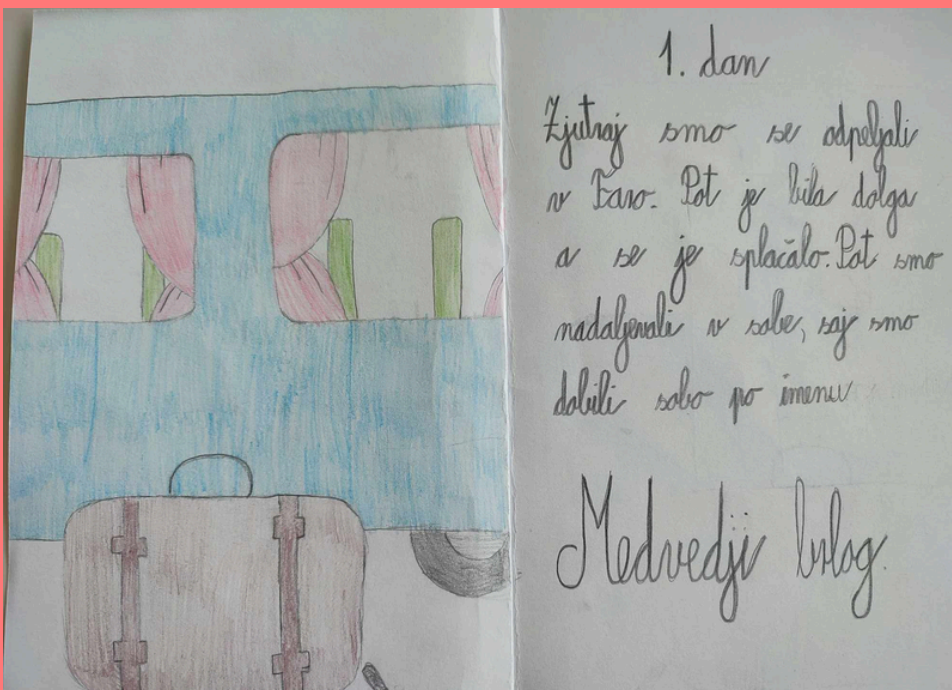 1. dan
Zjutraj smo se odpeljali
v Faro. Pot je bila dolga
a se je splačalo. Pot smo
nadaljevali v sobe, saj smo
dobili sobo po imenu
Medvedji brlog.